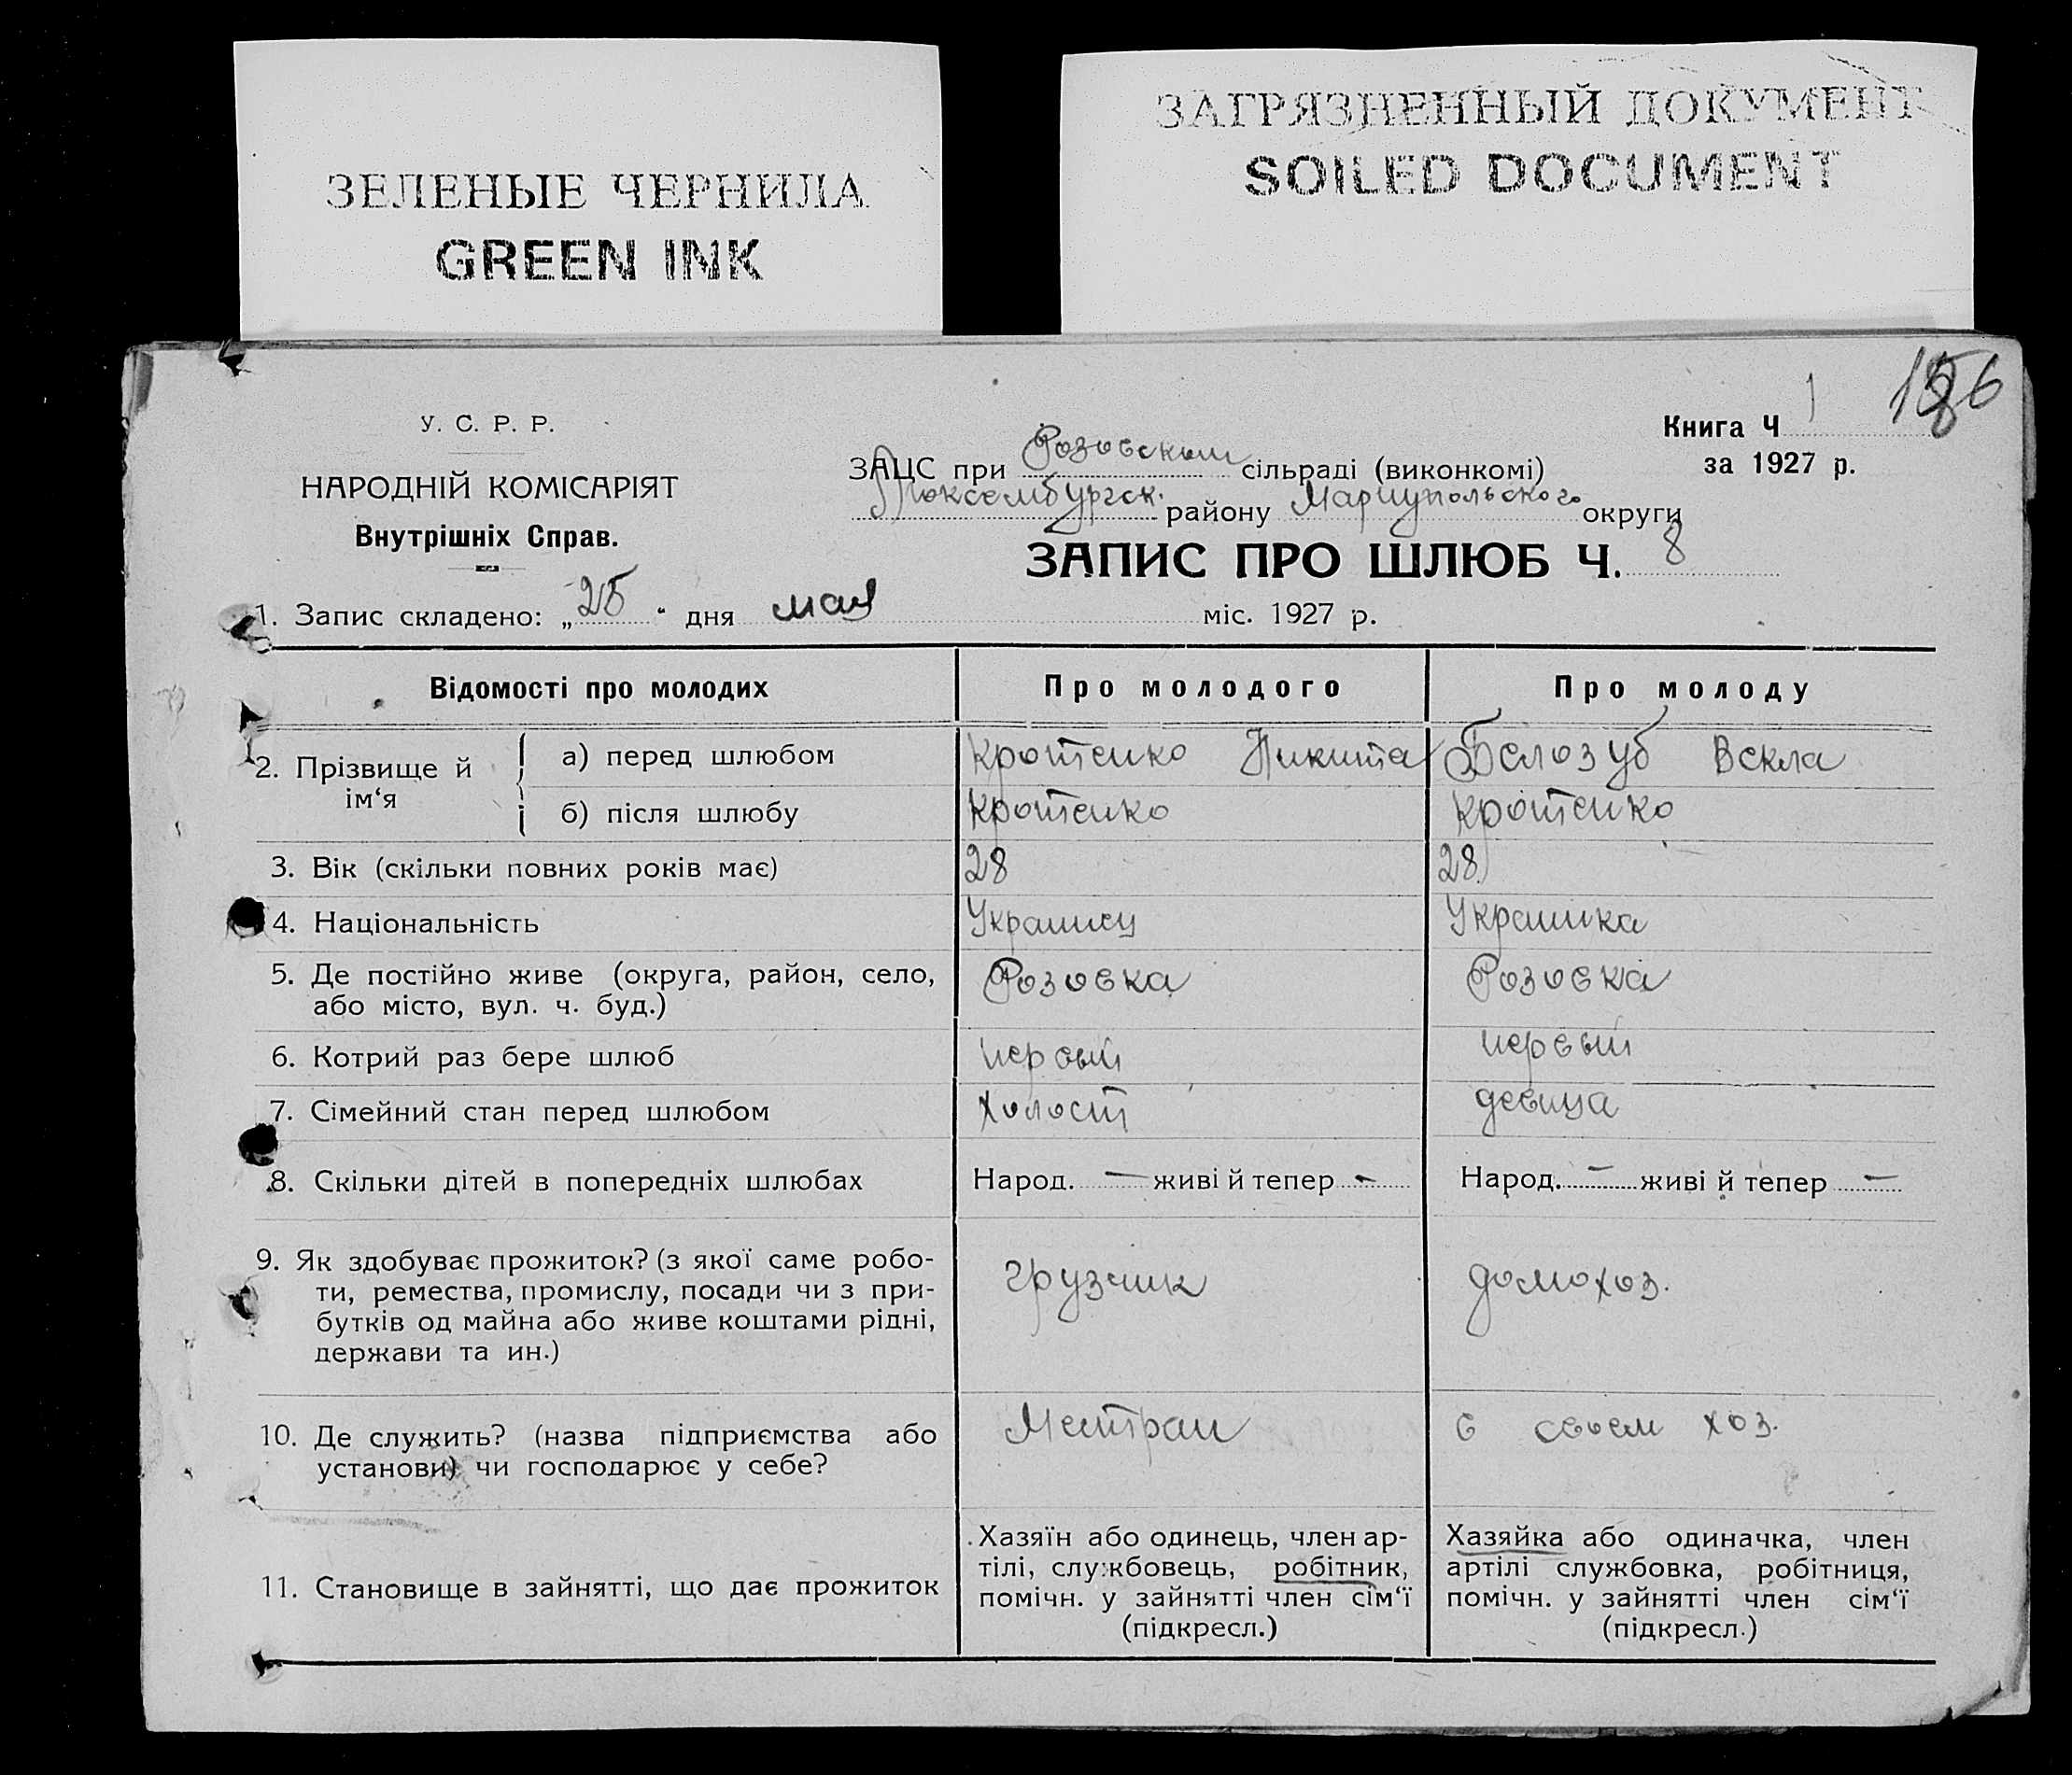 ЗЕЛЕНЫЕ ЧЕРНИЛА
GREEN INK
ЗАГРЯЗНЕННЫЙ ДОКУМЕНТ
SOILED DOCUMENT
У. С. Р. Р.
НАРОДНІЙ КОМІСАРІЯТ
Внутрішніх Справ.
Книга Ч 1
за 1927 р.
ЗАЦС при Розовском сільраді (виконкомі)
Люксембургск. району Мариупольского округи
ЗАПИС ПРО ШЛЮБ Ч. 8
1. Запис складено: „25“ дня мая міс. 1927 р.
Відомості про молодих Про молодого Про молоду
2. Прізвище й ім‘я
а) перед шлюбом Кротенко Никита Белозуб Векла
б) після шлюбу Кротенко Кротенко
3. Вік (скільки повних років має) 28 28
4. Національність Украинец Украинка
5. Де постійно живе (округа, район, село, або місто, вул. ч. буд.) Розовка Розовка
6. Котрий раз бере шлюб первый первый
7. Сімейний стан перед шлюбом холост девица
8. Скільки дітей в попередніх шлюбах Народ. — живі й тепер — Народ. — живі й тепер —
9. Як здобуває прожиток? (з якої саме робо-
ти, ремества, промислу, посади чи з при-
бутків од майна або живе коштами рідні,
держави та ин.)
грузчик домохоз.
10. Де служить? (назва підприємства або
установи) чи господарює у себе?
в своем хоз.
11. Становище в зайнятті, що дає прожиток
Хазяїн або одинець, член ар-
тілі, службовець, робітник,
помічн. у зайнятті член сім‘ї
(підкресл.)
Хазяйка або одиначка, член
артілі службовка, робітниця,
помічн. у зайнятті член сім‘ї
(підкресл.)